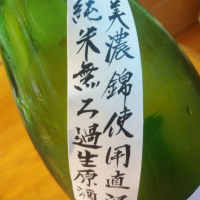 美濃錦使用直汲
純米無ろ過生原酒